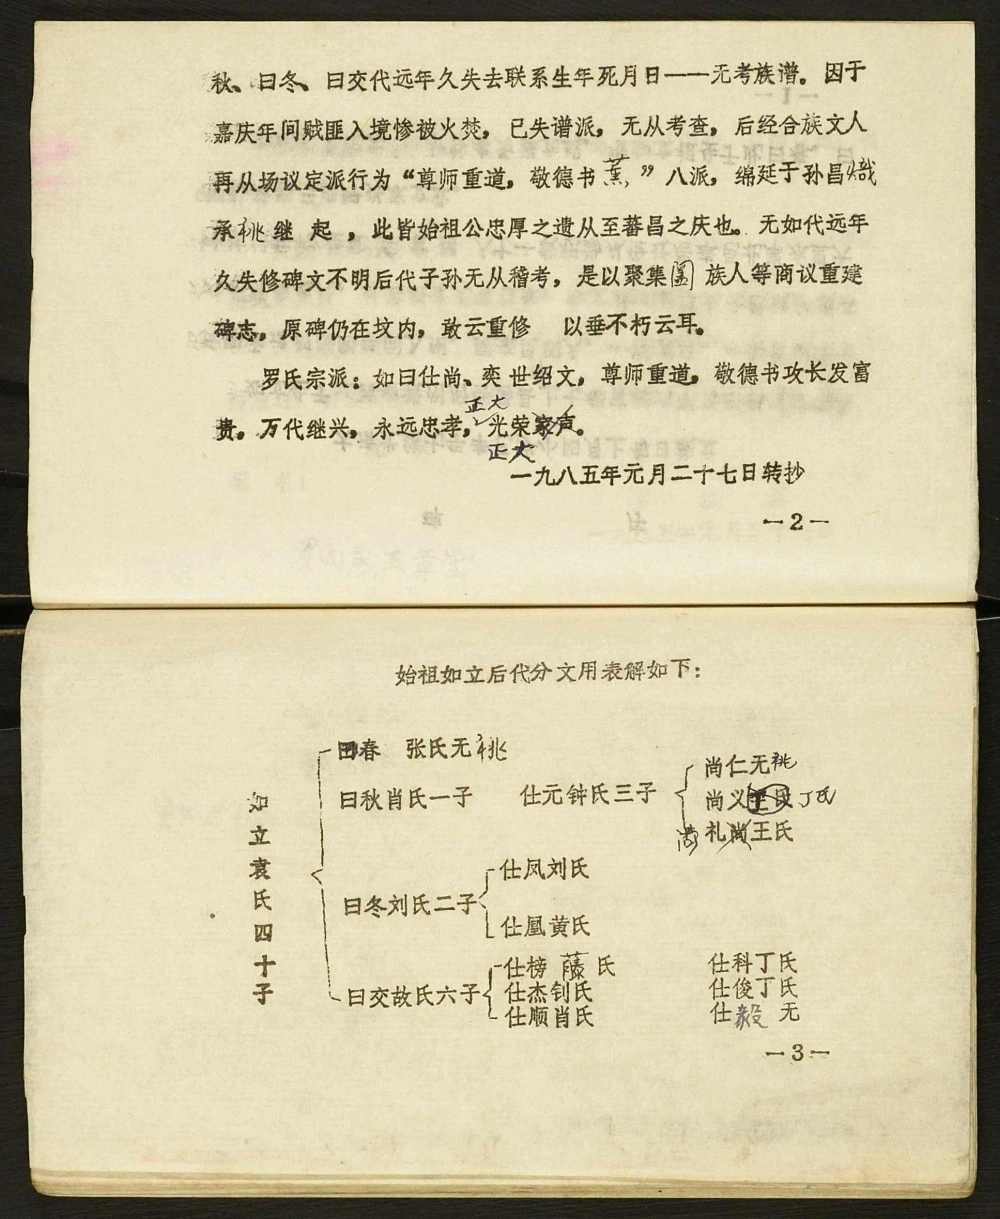 秋、曰冬、曰交代远年久失去联系生年死月日——无考族谱。因于
嘉庆年间贼匪入境惨被火焚，已失谱派，无从考查，后经合族文人
再从场议定派行为“尊师重道，敬德书薰”八派，绵延于孙昌炽
承祧继起，此皆始祖公忠厚之遗从至蕃昌之庆也。无如代远年
久失修碑文不明后代子孙无从稽考，是以聚集阖族人等商议重建
碑志，原碑仍在坟内，敢云重修 以垂不朽云耳。
罗氏宗派：如曰仕尚、奕世绍文，尊师重道，敬德书攻长发富
正大
贵，万代继兴，永远忠孝，光荣家声。
正大
一九八五年元月二十七日转抄
—2—
始祖如立后代分文用表解如下：
如立袁氏四十子
曰春 张氏无祧
曰秋肖氏一子 仕元钟氏三子
尚仁无祧
尚义王氏 丁氏
尚 礼尚王氏
曰冬刘氏二子
仕凤刘氏
仕凰黄氏
曰交故氏六子
仕榜藤氏 仕科丁氏
仕杰钊氏 仕俊丁氏
仕顺肖氏 仕毅 无
—3—